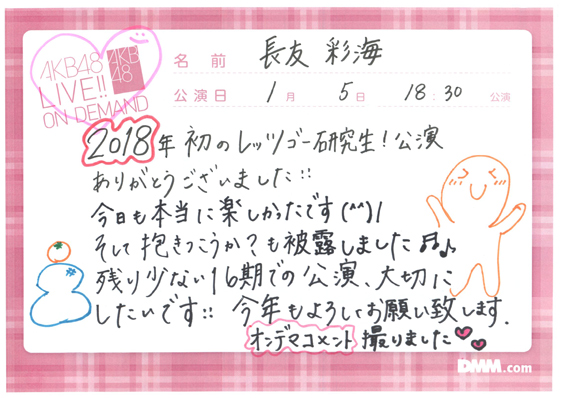 AKB48
LIVE!!
ON DEMAND
AKB
48
名前 長友 彩海
公演日 1月 5日 18:30 公演
2018年 初のレッツゴー研究生!公演
ありがとうございました::
今日も本当に楽しかったです(^^)/
そして抱きつこうか?も披露しました♬♪
残り少ない16期での公演、大切に
したいです:: 今年もよろしくお願い致します.
オンデマコメント 撮りました
DMM.com